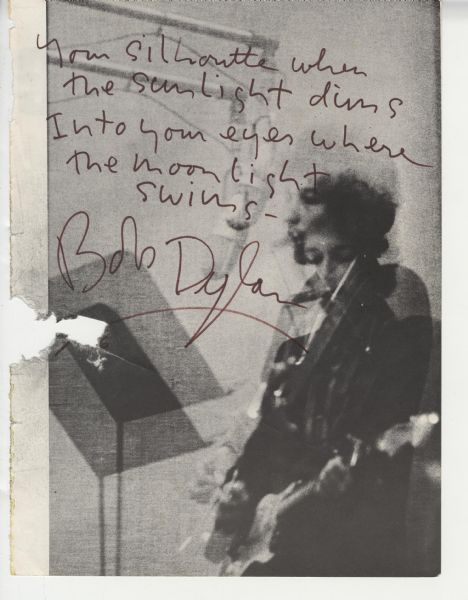 Your silhouette when
the sunlight dims
Into your eyes where
the moonlight
swims-
Bob Dylan